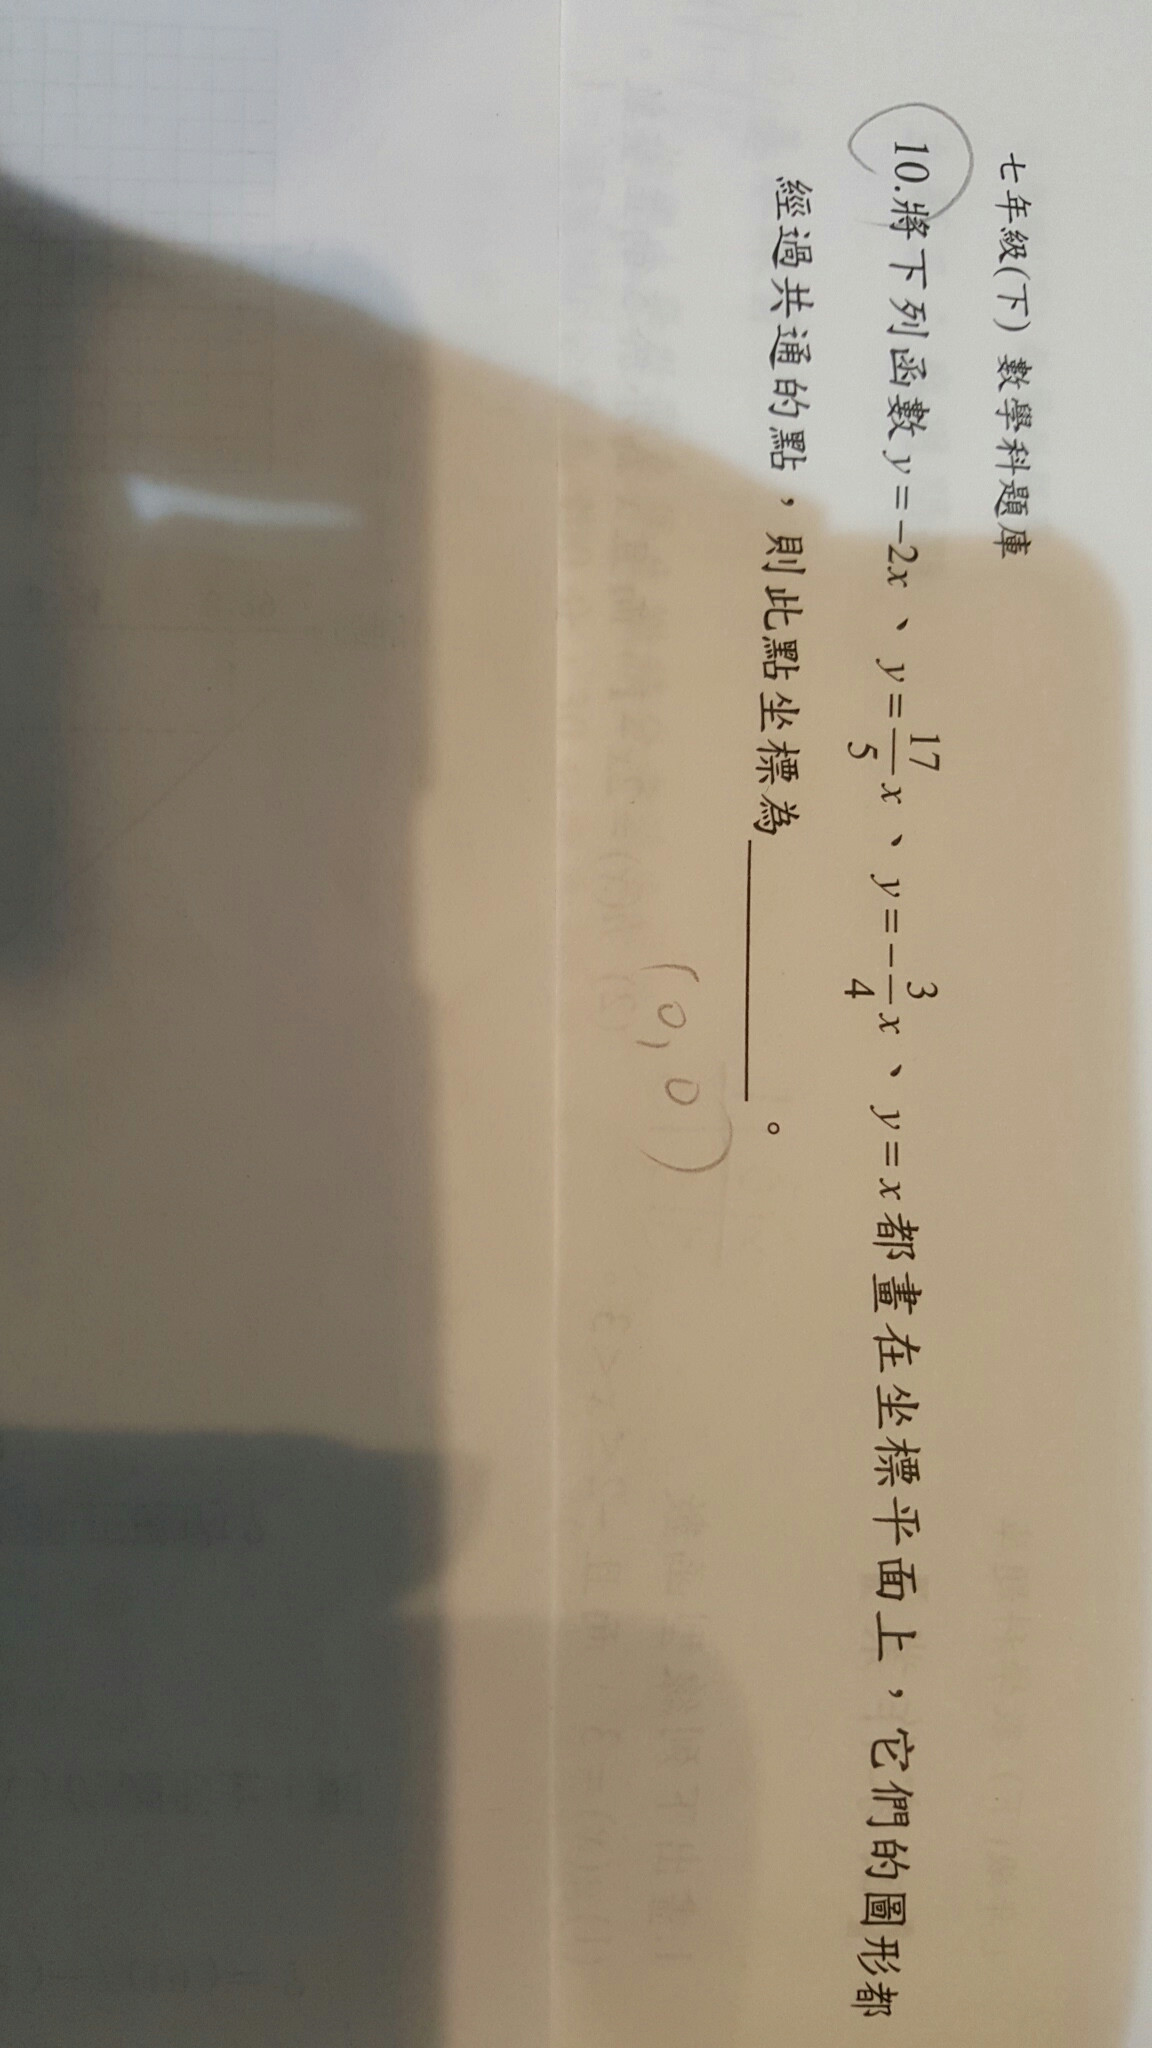 七年級(下) 數學科題庫
10.將下列函數 y=-2x、y=17/5x、y=-3/4x、y=x 都畫在坐標平面上，它們的圖形都
經過共通的點，則此點坐標為________。
(0,0)